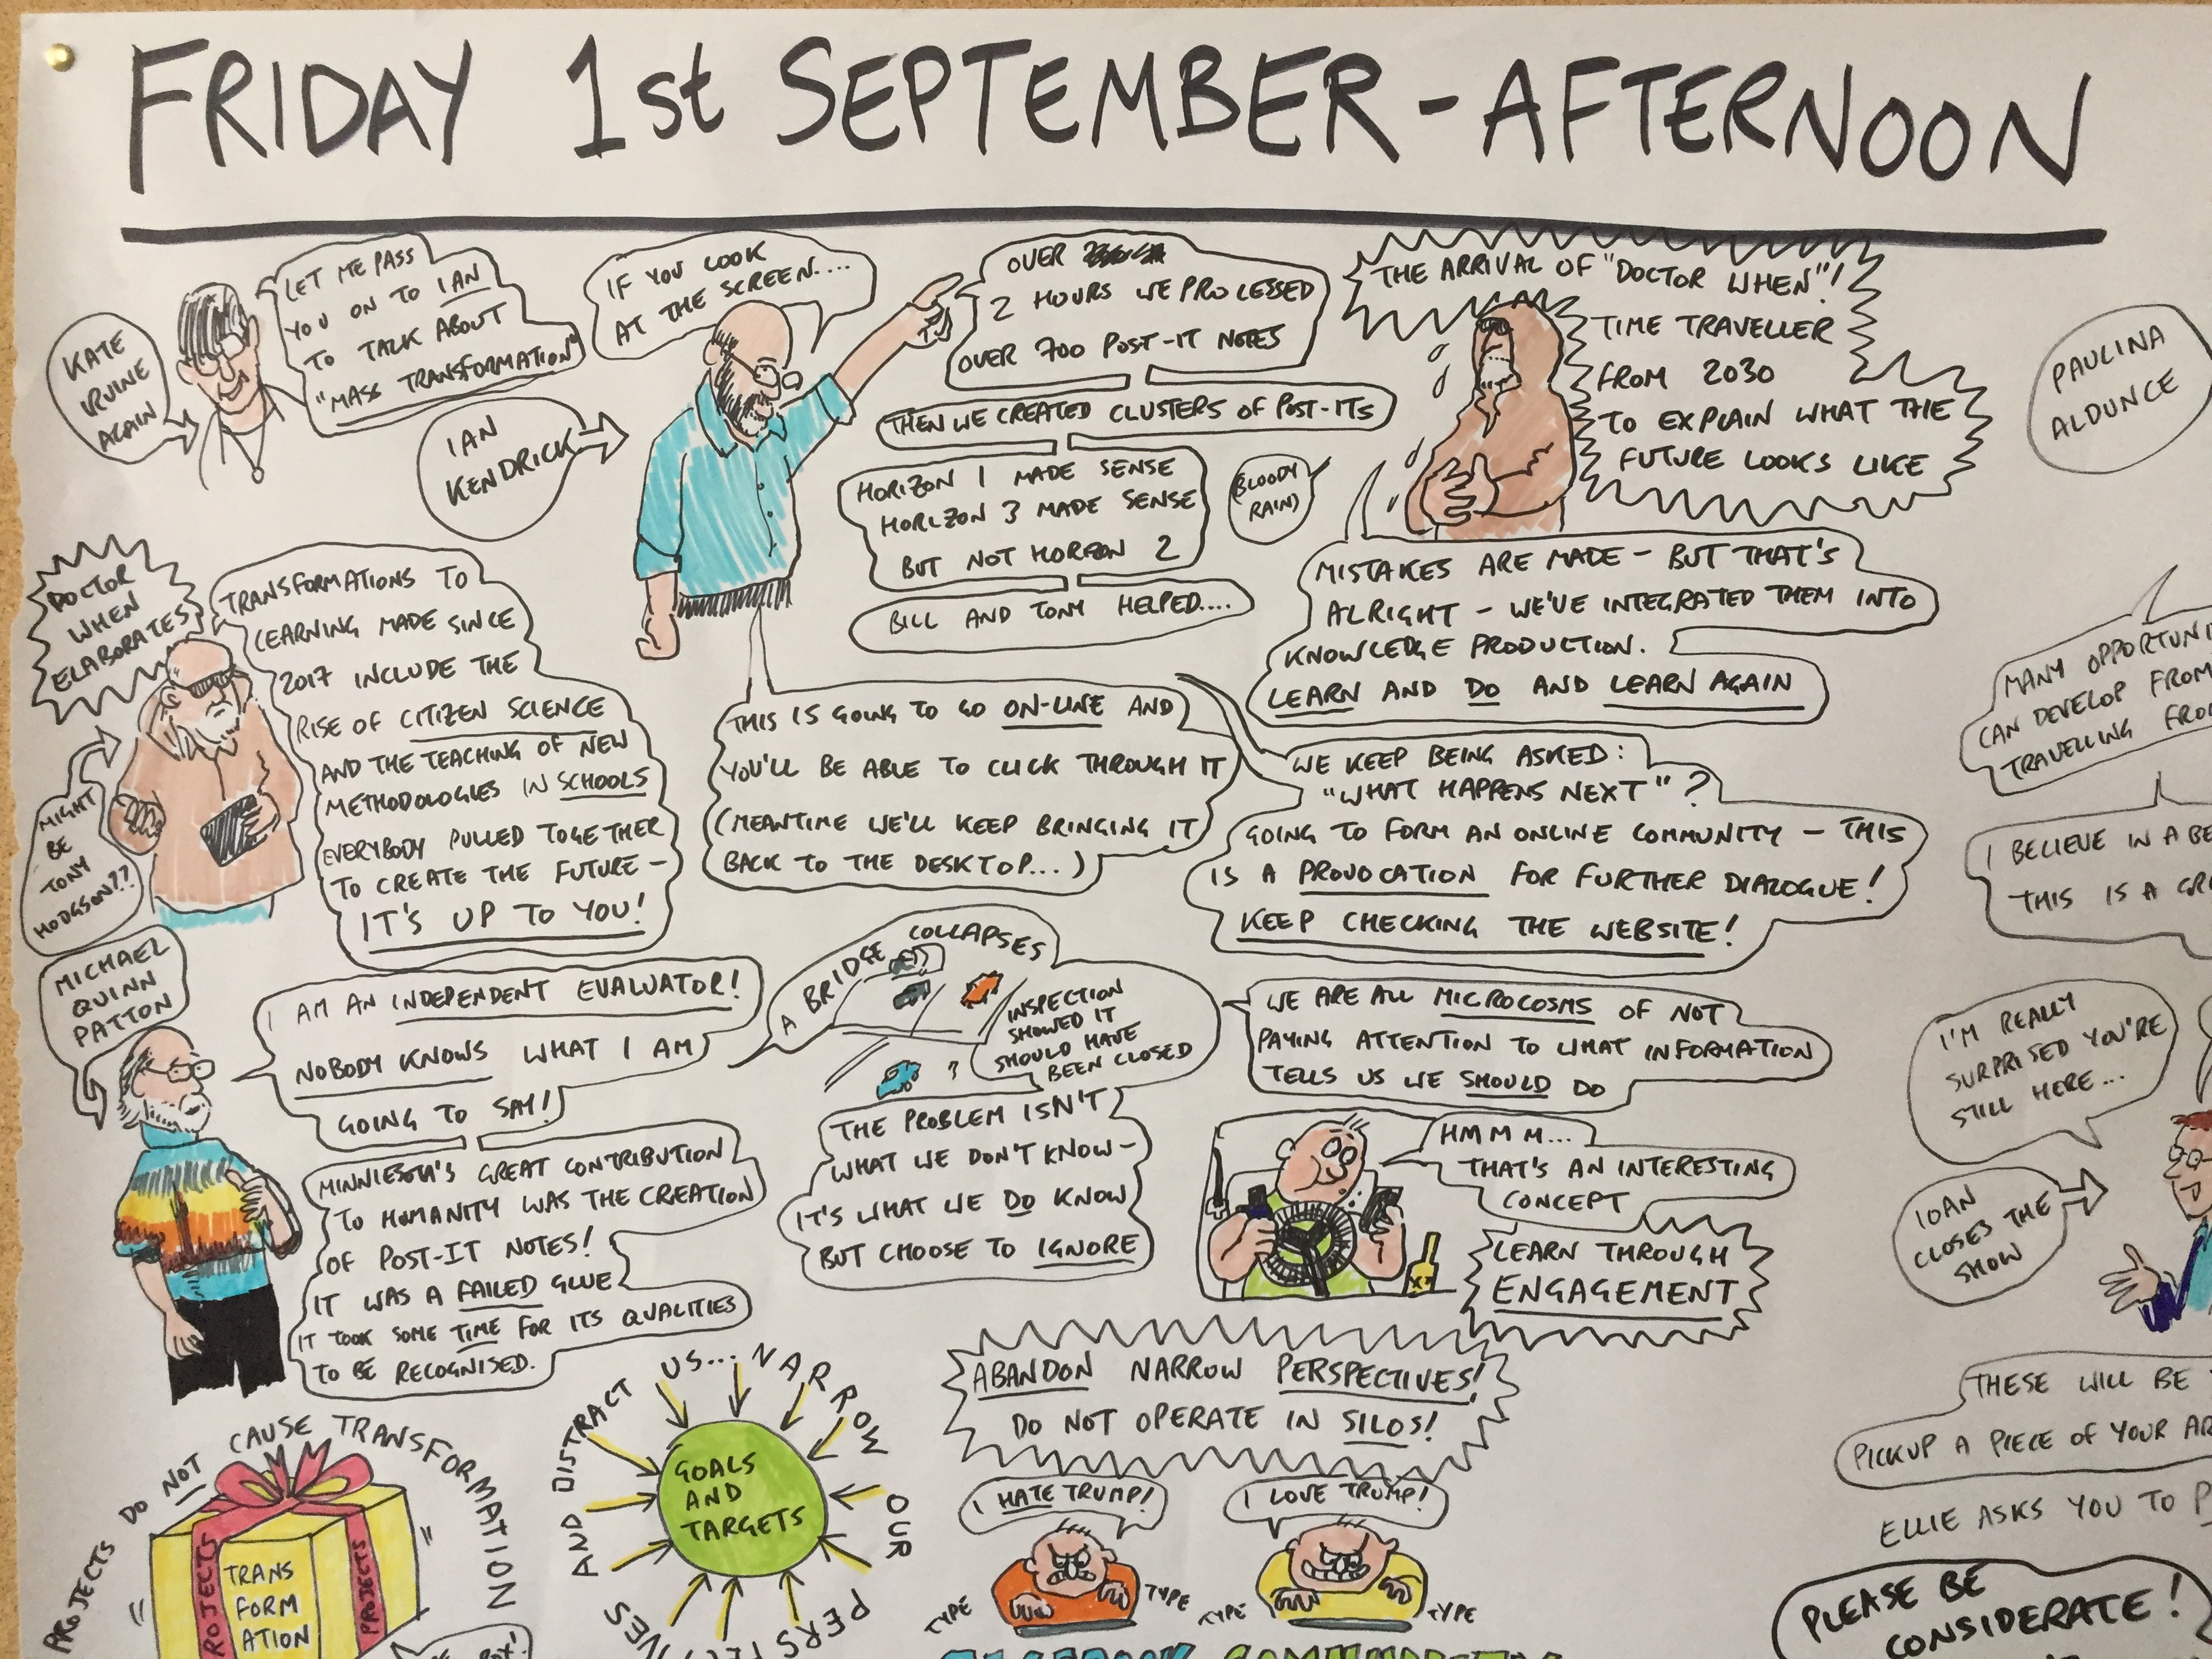 FRIDAY 1st SEPTEMBER - AFTERNOON
KATE
IRVINE
AGAIN
LET ME PASS
YOU ON TO IAN
TO TALK ABOUT
"MASS TRANSFORMATION"
IAN
KENDRICK
IF YOU LOOK
AT THE SCREEN....
OVER
2 HOURS WE PROCESSED
OVER 700 POST-IT NOTES
THEN WE CREATED CLUSTERS OF POST-ITS
HORIZON 1 MADE SENSE
HORIZON 3 MADE SENSE
BUT NOT HORIZON 2
BILL AND TONY HELPED....
THE ARRIVAL OF "DOCTOR WHEN"!
TIME TRAVELLER
FROM 2030
TO EXPLAIN WHAT THE
FUTURE LOOKS LIKE
(BLOODY
RAIN)
MISTAKES ARE MADE - BUT THAT'S
ALRIGHT - WE'VE INTEGRATED THEM INTO
KNOWLEDGE PRODUCTION.
LEARN AND DO AND LEARN AGAIN
PAULINA
ALDUNCE
MANY OPPORTUNI
CAN DEVELOP FROM
TRAVELLING FRO
I BELIEVE IN A BE
THIS IS A GR
DOCTOR
WHEN
ELABORATES
MIGHT
BE
TONY
HODGSON??
TRANSFORMATIONS TO
LEARNING MADE SINCE
2017 INCLUDE THE
RISE OF CITIZEN SCIENCE
AND THE TEACHING OF NEW
METHODOLOGIES IN SCHOOLS
EVERYBODY PULLED TOGETHER
TO CREATE THE FUTURE -
IT'S UP TO YOU!
THIS IS GOING TO GO ON-LINE AND
YOU'LL BE ABLE TO CLICK THROUGH IT
(MEANTIME WE'LL KEEP BRINGING IT
BACK TO THE DESKTOP...)
WE KEEP BEING ASKED:
"WHAT HAPPENS NEXT"?
GOING TO FORM AN ONLINE COMMUNITY - THIS
IS A PROVOCATION FOR FURTHER DIALOGUE!
KEEP CHECKING THE WEBSITE!
MICHAEL
QUINN
PATTON
I AM AN INDEPENDENT EVALUATOR!
NOBODY KNOWS WHAT I AM
GOING TO SAY!
MINNIESOTA'S GREAT CONTRIBUTION
TO HUMANITY WAS THE CREATION
OF POST-IT NOTES!
IT WAS A FAILED GLUE
IT TOOK SOME TIME FOR ITS QUALITIES
TO BE RECOGNISED.
A BRIDGE COLLAPSES
INSPECTION
SHOWED IT
SHOULD HAVE
BEEN CLOSED
THE PROBLEM ISN'T
WHAT WE DON'T KNOW -
IT'S WHAT WE DO KNOW
BUT CHOOSE TO IGNORE
WE ARE ALL MICROCOSMS OF NOT
PAYING ATTENTION TO WHAT INFORMATION
TELLS US WE SHOULD DO
HMMM...
THAT'S AN INTERESTING
CONCEPT
LEARN THROUGH
ENGAGEMENT
I'M REALLY
SURPRISED YOU'RE
STILL HERE...
IOAN
CLOSES THE
SHOW
THESE WILL BE
PICKUP A PIECE OF YOUR AR
ELLIE ASKS YOU TO P
PLEASE BE
CONSIDERATE!
PROJECTS DO NOT CAUSE TRANSFORMATION
PROJECTS
TRANS
FORM
ATION
PROJECTS
GOALS
AND
TARGETS
AND DISTRACT US... NARROW OUR
ABANDON NARROW PERSPECTIVES!
DO NOT OPERATE IN SILOS!
I HATE TRUMP!
I LOVE TRUMP!
TYPE
TYPE
TYPE
TYPE